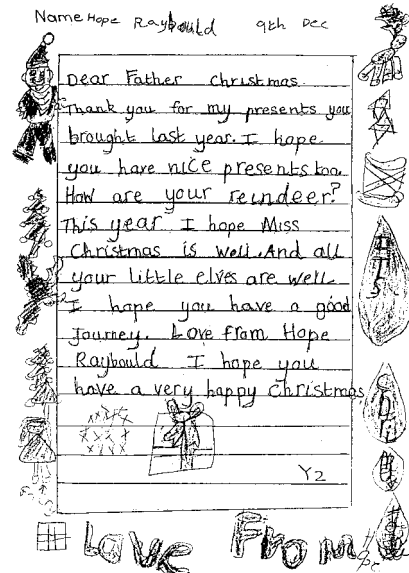 Name Hope Raybould 9th Dec
Dear Father Christmas
Thank you for my presents you
brought last year. I hope
you have nice presents too.
How are your reindeer?
This year I hope Miss
Christmas is well. And all
your little elves are well
I hope you have a good
Journey. Love from Hope
Raybould I hope you
have a very happy Christmas
Y2
Love From Hope